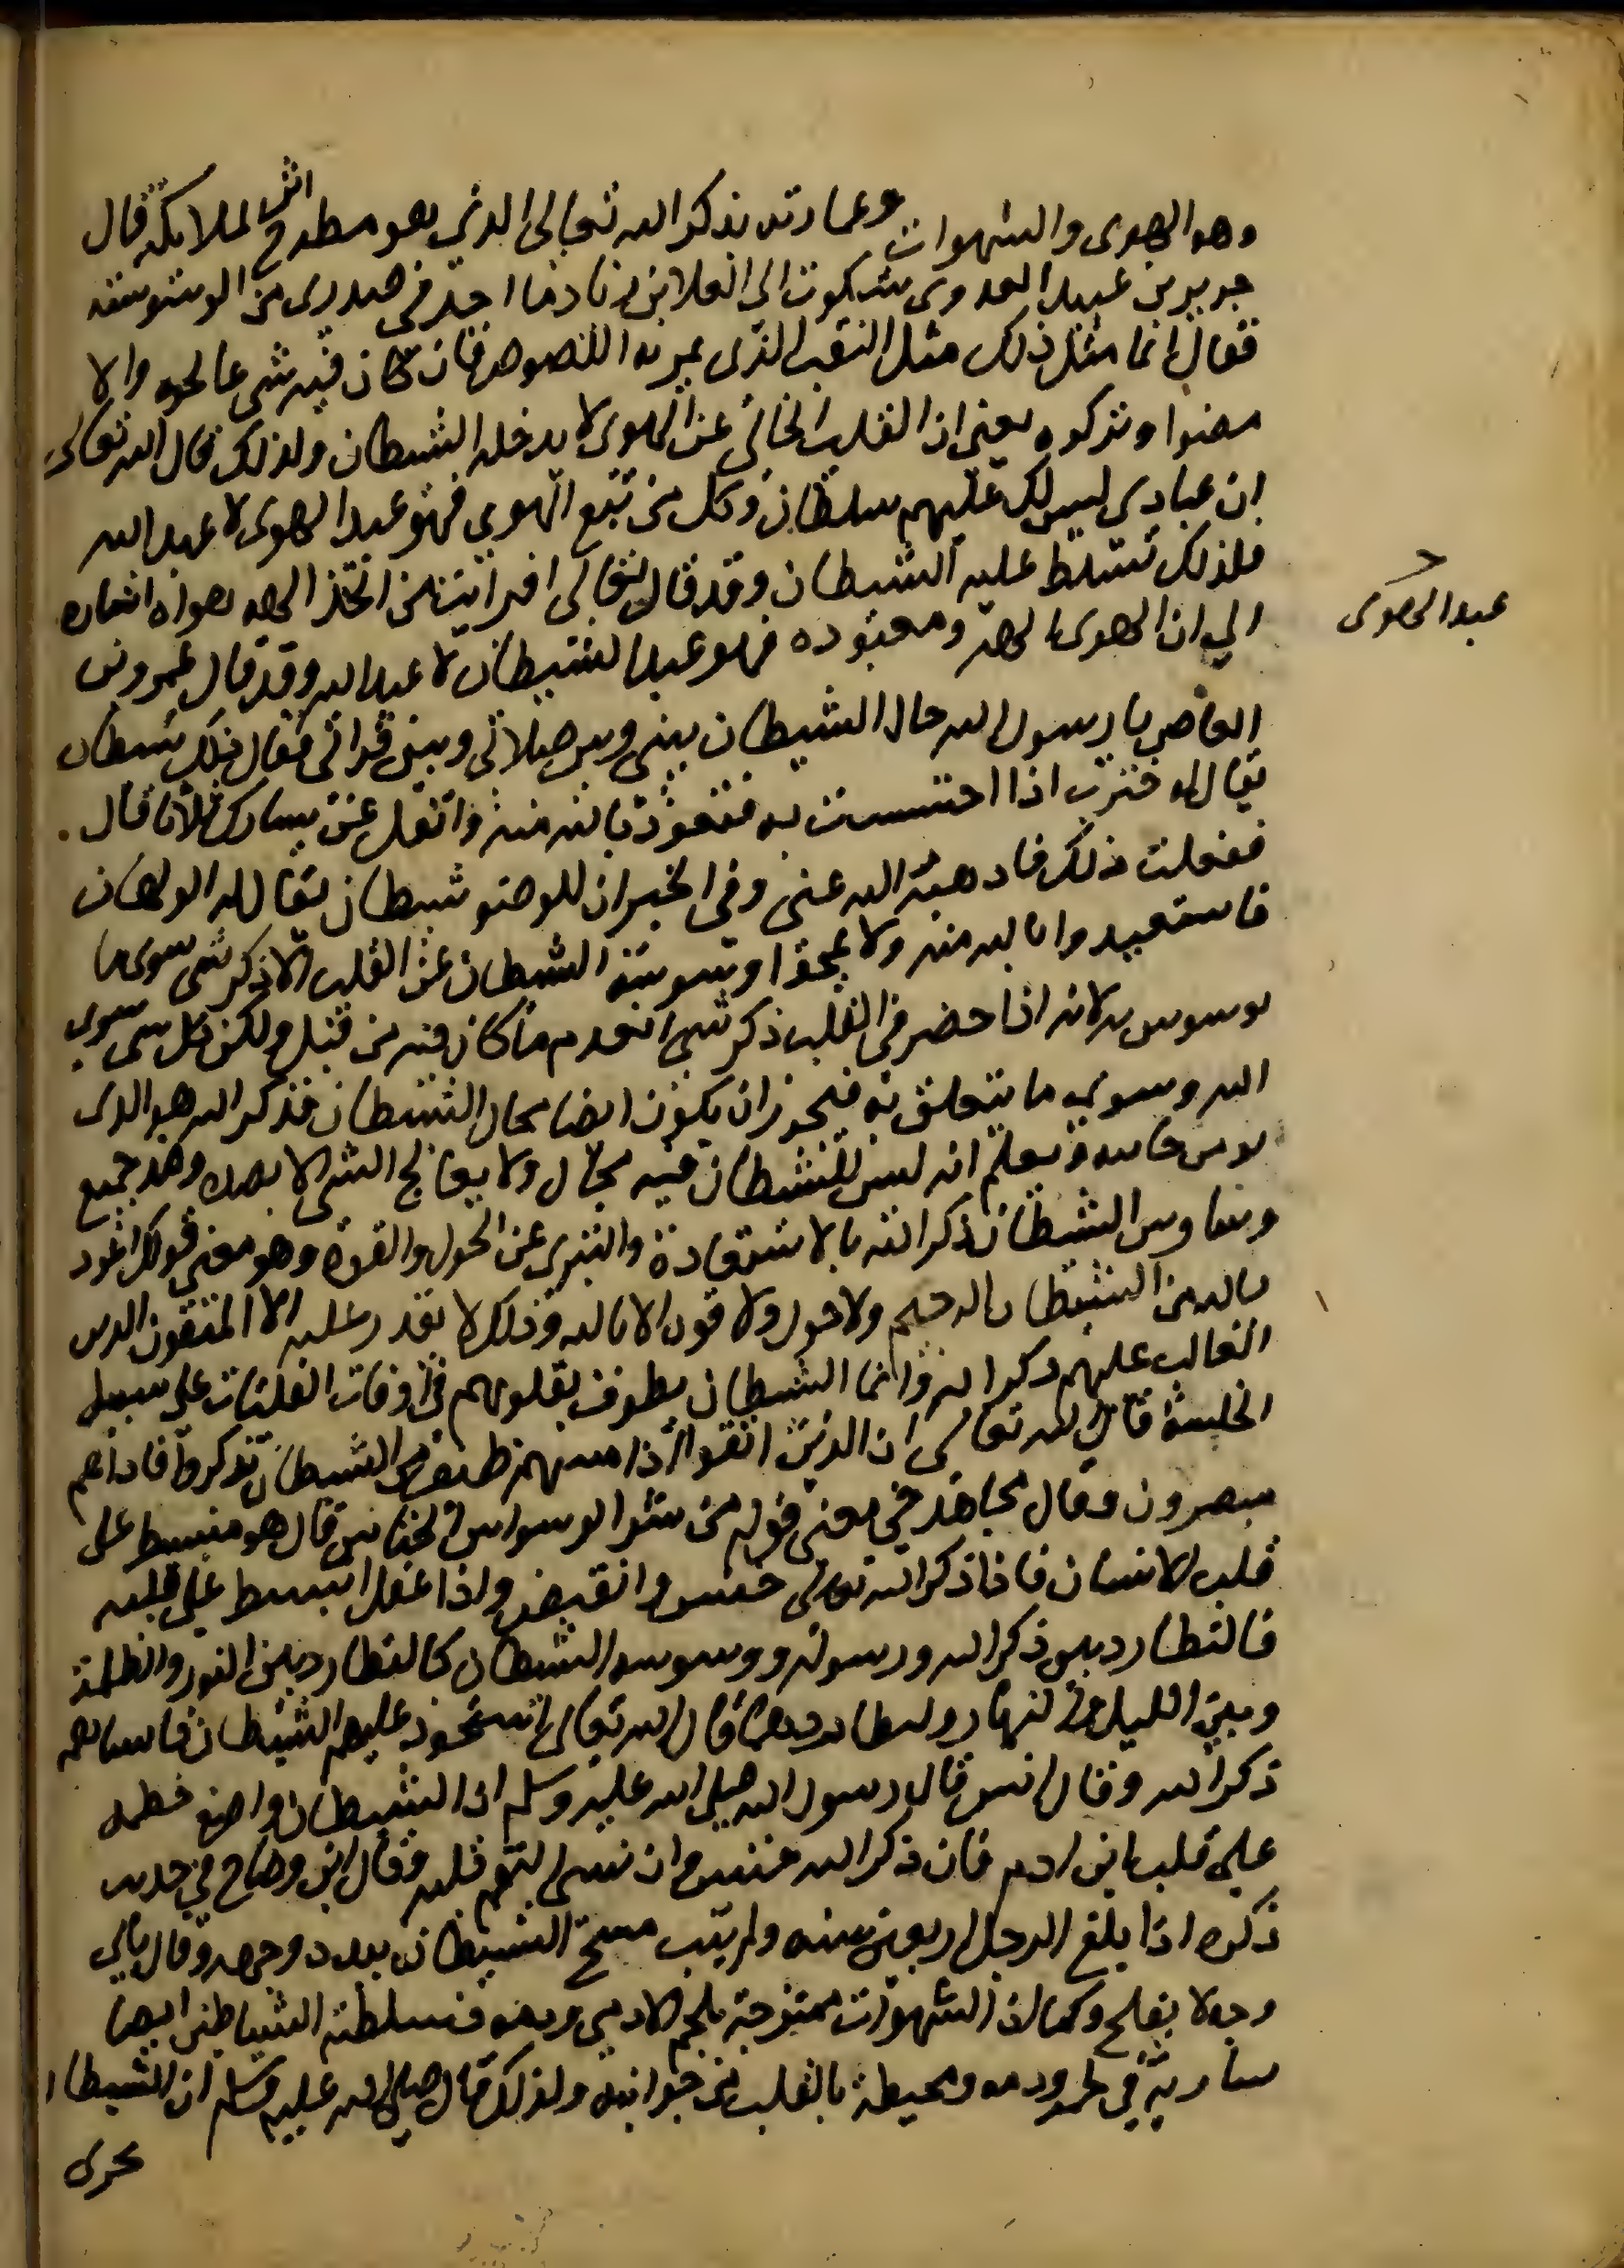 وهو الهوى والشهوات وعمارته بذكر الله تعالى الذي هو مطرح اثر الملائكة قال
جرير بن عبيد العدوى شكوت الى العلا بن زياد ما اجد في صدرى من الوسوسة
فقال انما مثل ذلك مثل النقب الذى يمر به اللصوص فان كان فيه شي عالجوه والا
مضوا وتركوه يعني ان القلب الخالي عن الهوى لا يدخله الشيطان ولذلك قال الله تعالى
ان عبادي ليس لك عليهم سلطان وكل من تبع الهوى فهو عبد الهوى لا عبد الله
فلذلك تسلط عليه الشيطان وقد قال تعالى افرايت من اتخذ الهه هواه اشاره
الي ان الهوى الهه ومعبوده فهو عبد الشيطان لا عبد الله وقد قال عمرو بن
العاص يا رسول الله حال الشيطان بيني وبين صلاتي وبين قراتي فقال ذلك شيطان
يقال له خنزب اذا احسست به فتعوذ بالله منه واتفل عن يسارك ثلاثا قال .
ففعلت ذلك فاذهبه الله عني وفي الخبر ان للوضو شيطان يقال له الولهان
فاستعيذوا بالله منه ولا يمحوا وسوسة الشيطان عن القلب الا ذكر شي سوى ما
يوسوس به لانه اذا حضر في القلب ذكر شي انعدم ما كان فيه من قبل ولكن كل شي سوى
الله وسوى ما يتعلق به فيجوز ان يكون ايضا مجال الشيطان فذكر الله هو الذى
يومن جانبه ويعلم انه ليس للشيطان فيه مجال ولا يعالج الشي الا بضده وضد جميع
وساوس الشيطان ذكر الله بالاستعاذة والتبرى عن الحول والقوة وهو معنى قولك اعوذ
بالله من الشيطان الرجيم ولا حول ولا قوة الا بالله وذلك لا يقدر عليه الا المتقون الذين
الغالب عليهم ذكر الله وانما الشيطان يطوف بقلوبهم في اوقات الفلتات على سبيل
الخلسة قال الله تعالى ان الذين اتقوا اذا مسهم طيف من الشيطان تذكروا فاذا هم
مبصرون وقال مجاهد في معنى قوله من شر الوسواس الخناس قال هو منبسط على
قلب الانسان فاذا ذكر الله تعالى خنس وانقبض واذا غفل انبسط على قلبه
فالتطارد بين ذكر الله ورسوله ووسوسه الشيطان كالتطارد بين النور والظلمة
وبين الليل والنهار ولتطاردهما قال الله تعالى استحوذ عليهم الشيطان فانساهم
ذكر الله وقال انس قال رسول الله صلى الله عليه وسلم ان الشيطان واضع خطمه
على قلب ابن ادم فان ذكر الله خنس وان نسى التقم قلبه وقال ابن وضاح في حديث
ذكره اذا بلغ الرجل اربعين سنه ولم يتب مسح الشيطان بيده وجهه وقال بابي
وجه لا يفلح وكما ان الشهوات ممتزجة بلحم الادمي ودمه فسلطنة الشياطين ايضا
سارية في لحمه ودمه ومحيطة بالقلب من جوانبه ولذلك قال صلى الله عليه وسلم ان الشيطان
يجرى
عبد الهوى